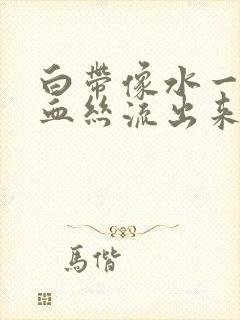 白帶像水一
血絲流出來
馬偕